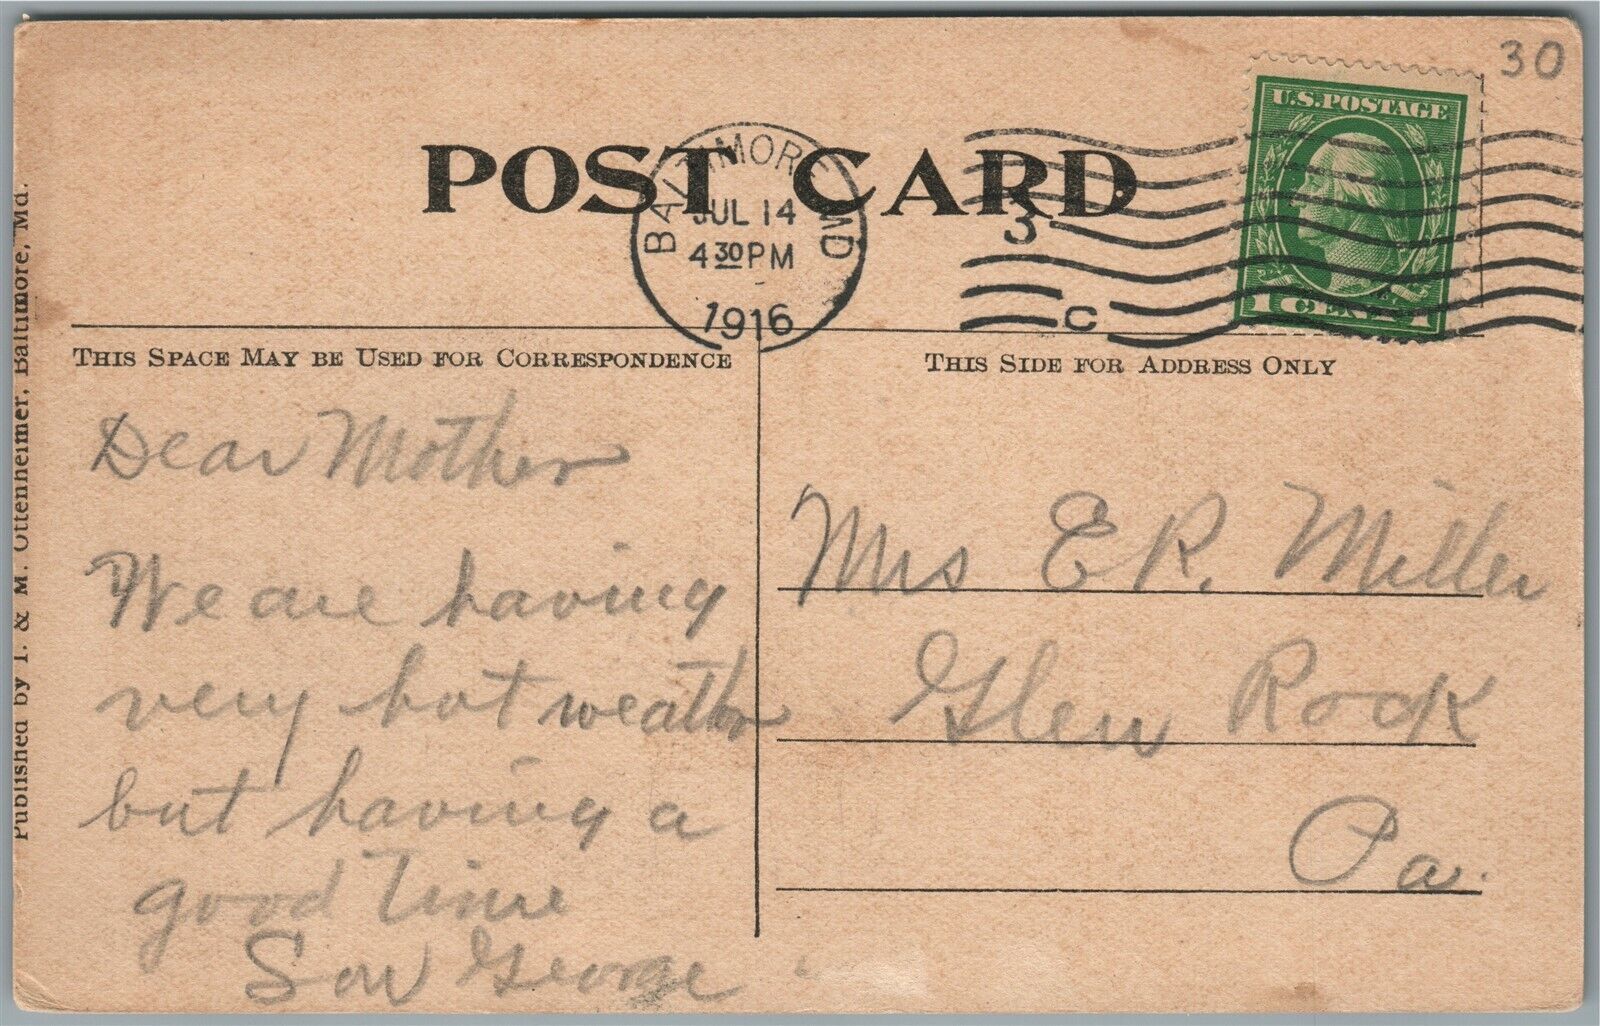 30
U.S. POSTAGE
1 CENT 1
POST CARD
BALTIMORE MD
JUL 14
4 30 PM
1916
3
C
THIS SPACE MAY BE USED FOR CORRESPONDENCE
THIS SIDE FOR ADDRESS ONLY
Published by I. & M. Ottenheimer, Baltimore, Md.
Dear Mother
We are having
very hot weather
but having a
good time
Son George
Mrs E R. Miller
Glen Rock
Pa.